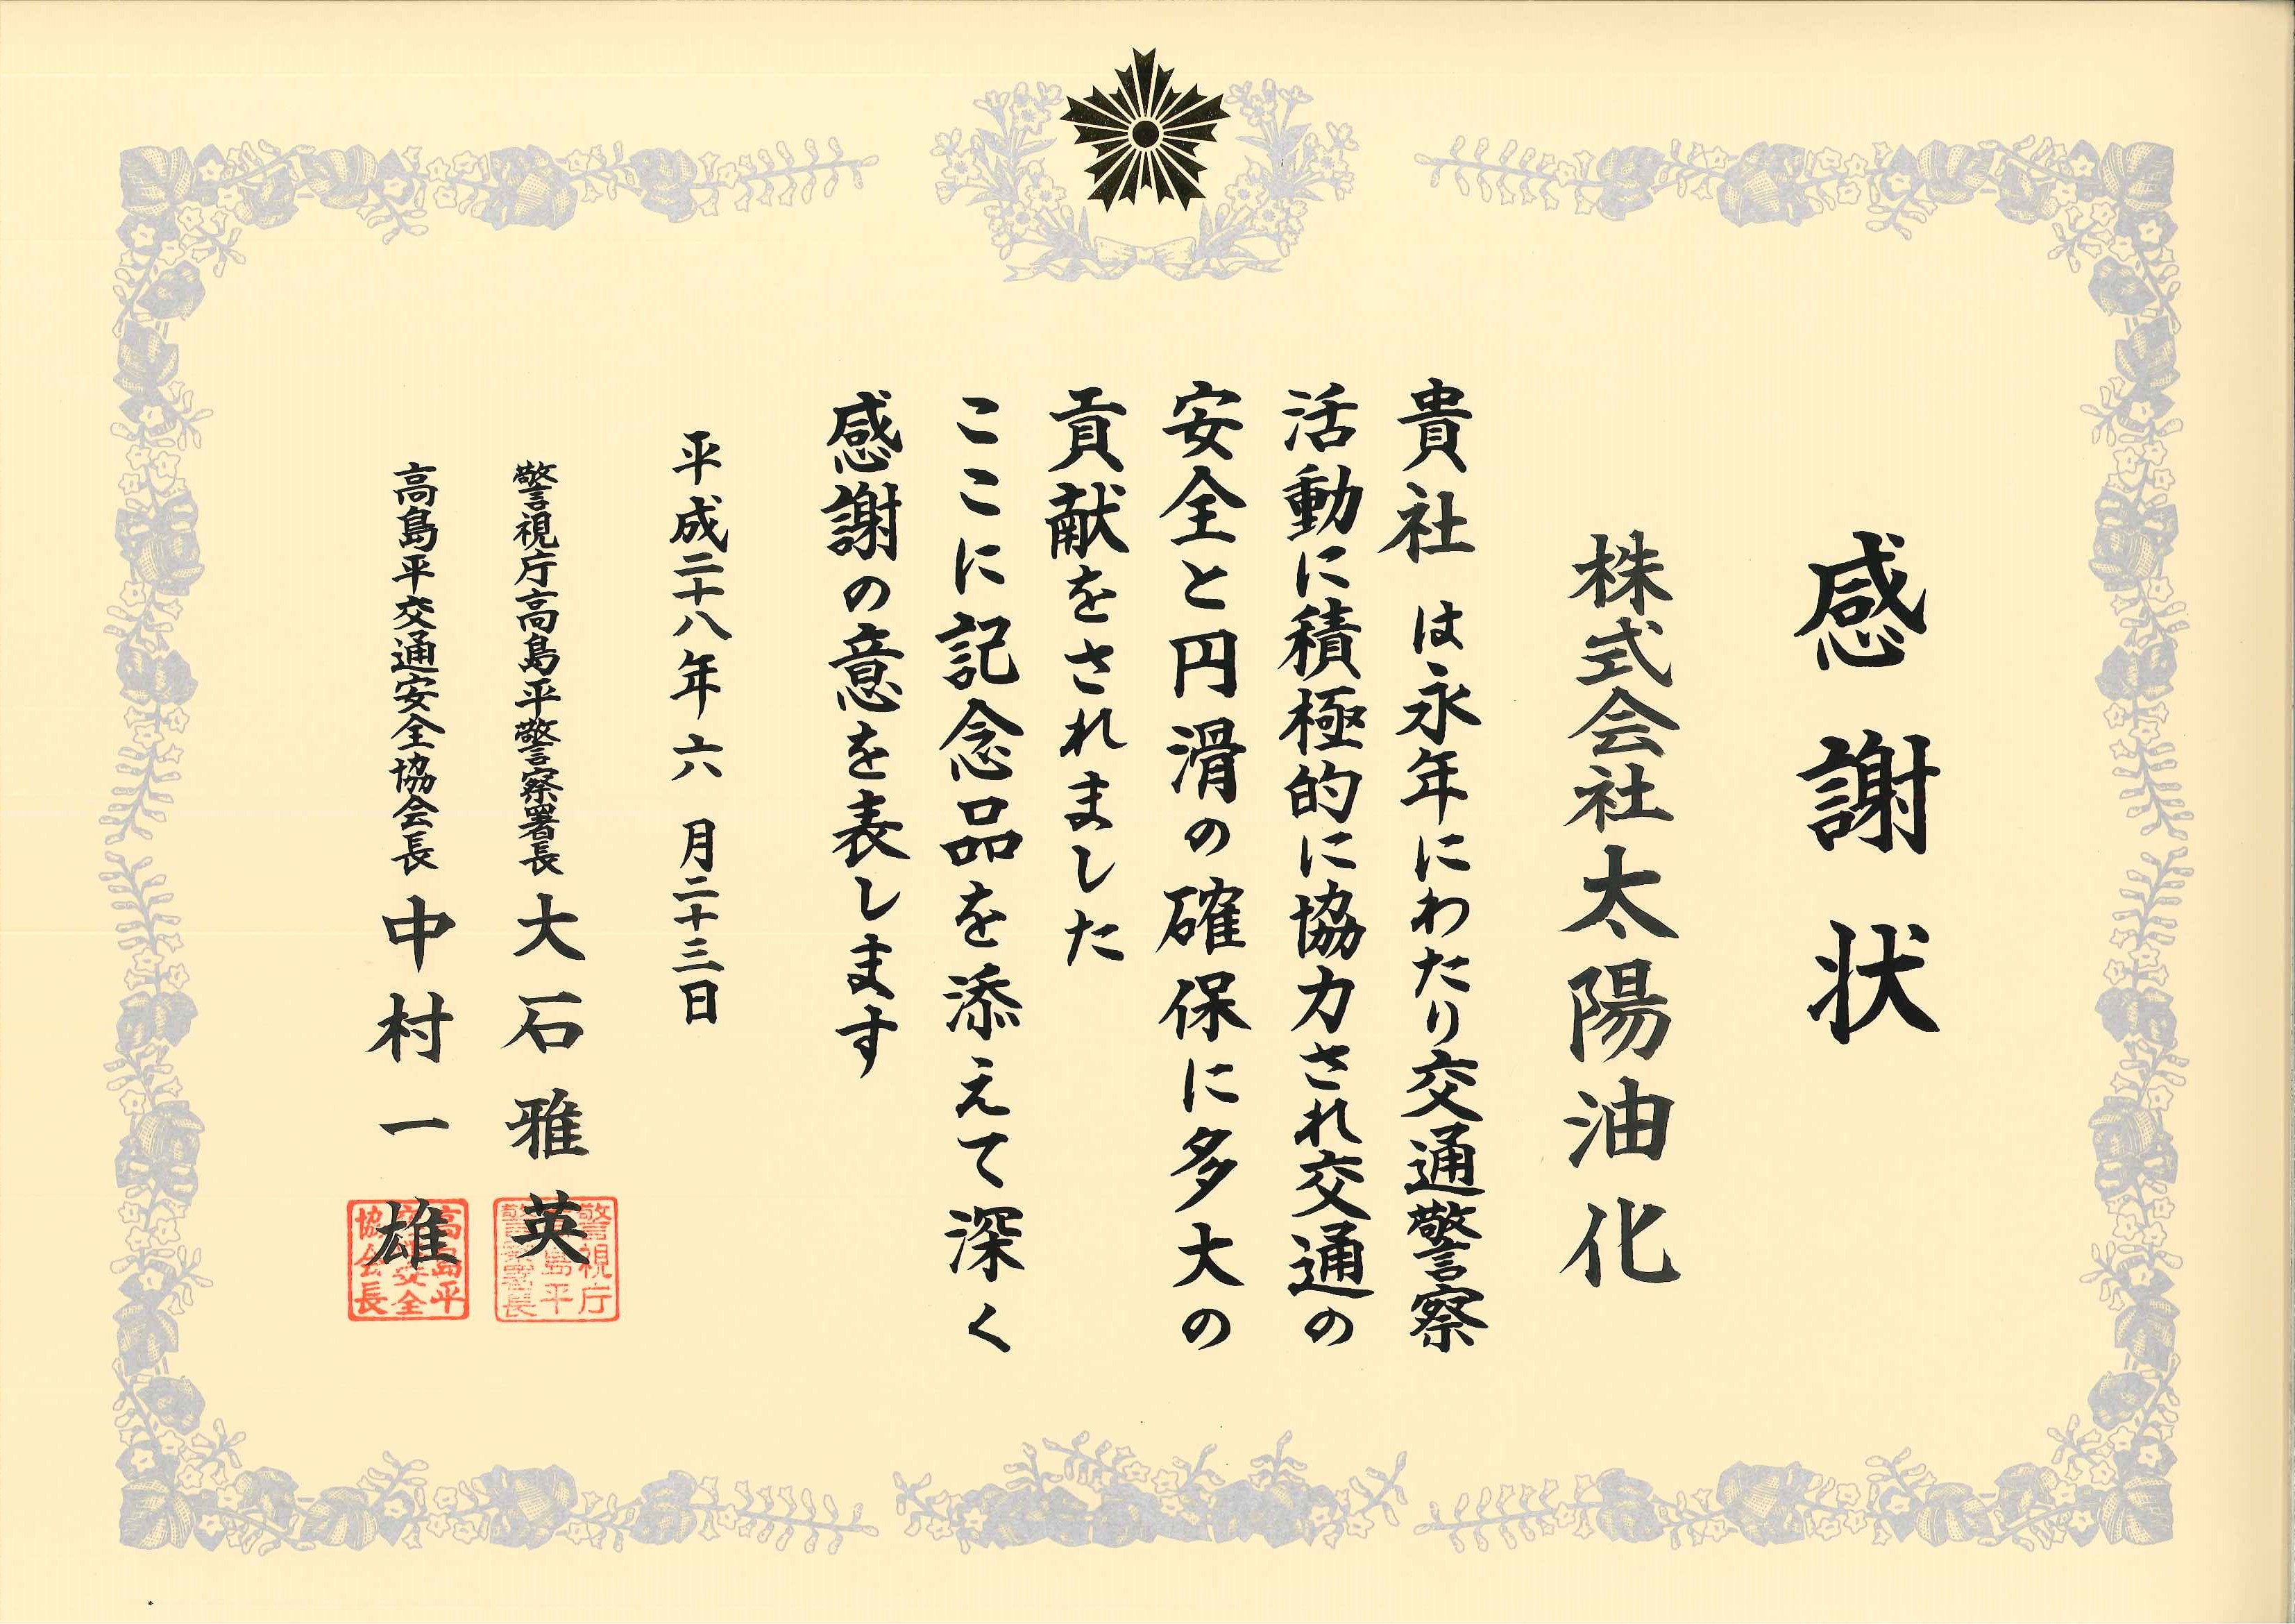 感謝状
株式会社太陽油化
貴社は永年にわたり交通警察
活動に積極的に協力され交通の
安全と円滑の確保に多大の
貢献をされました
ここに記念品を添えて深く
感謝の意を表します
平成二十八年六月二十三日
警視庁高島平警察署長 大石雅英
警視庁
高島平
警察署長
高島平交通安全協会長 中村一雄
高島平
交通安全
協会長